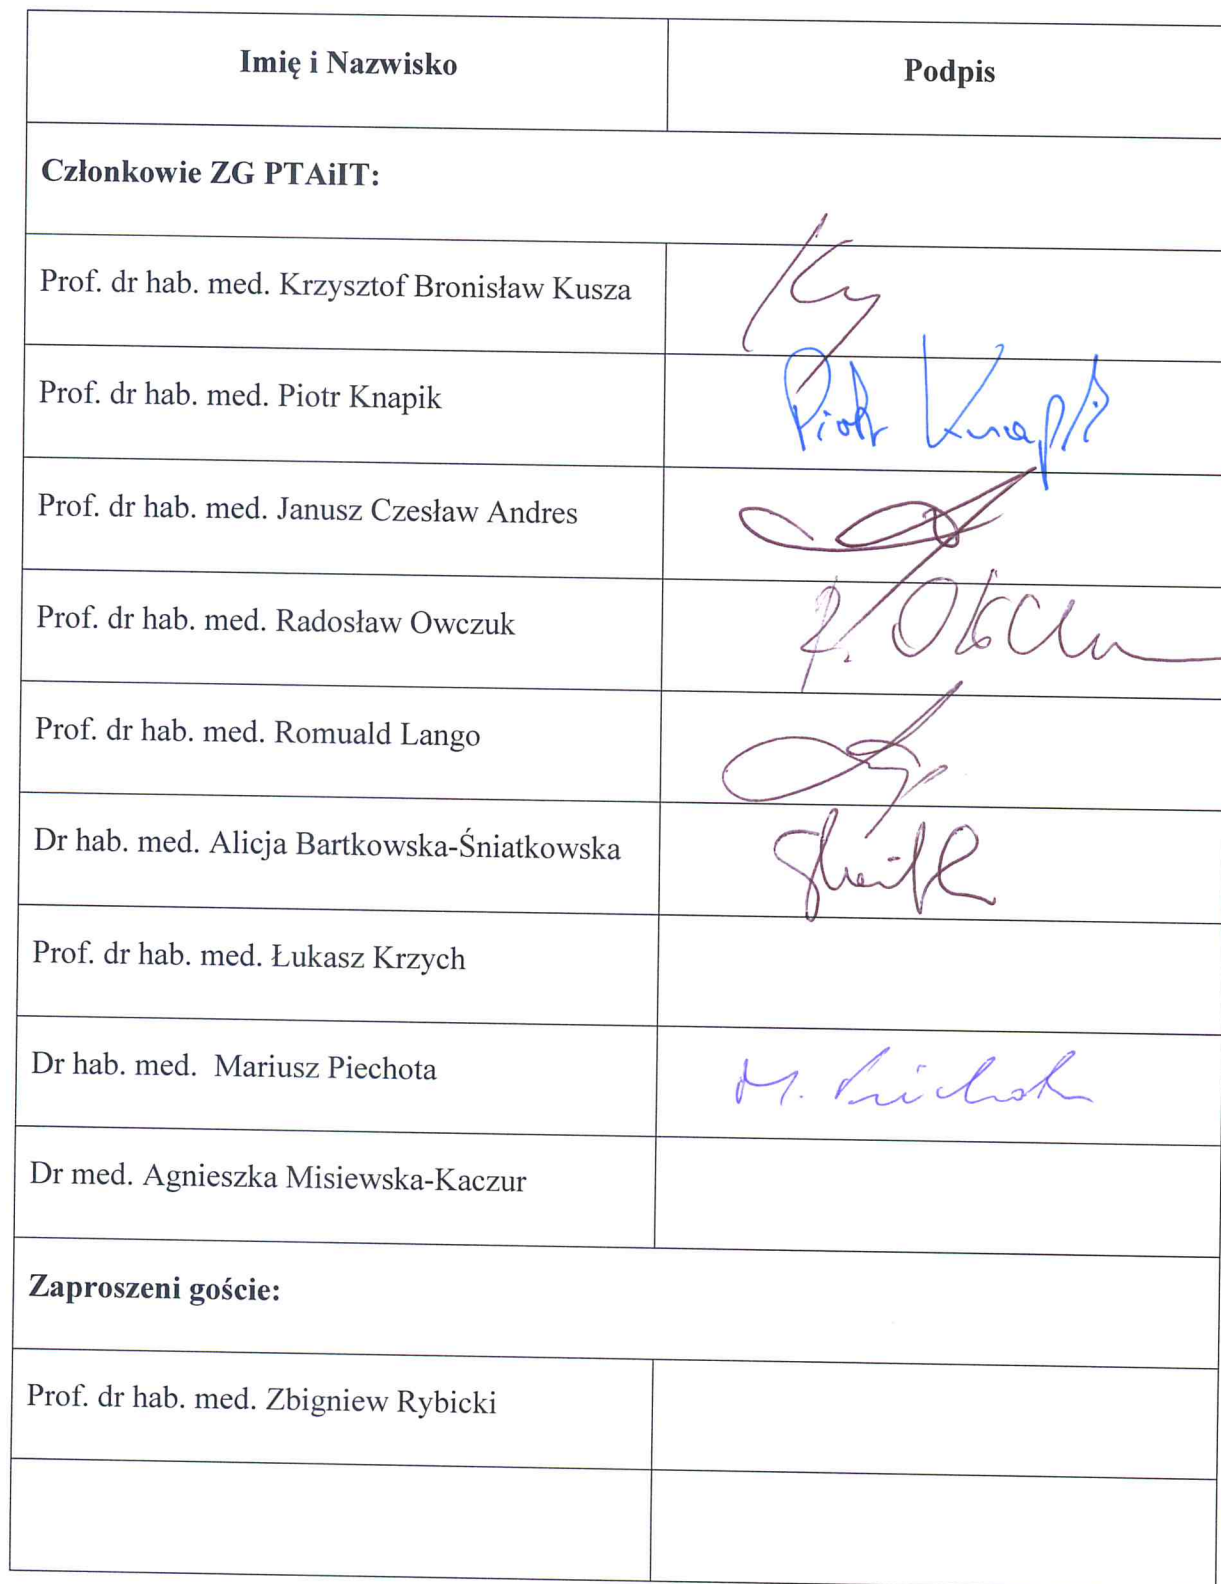 Imię i Nazwisko
Podpis
Członkowie ZG PTAiIT:
Prof. dr hab. med. Krzysztof Bronisław Kusza
Prof. dr hab. med. Piotr Knapik
Piotr Knapik
Prof. dr hab. med. Janusz Czesław Andres
Prof. dr hab. med. Radosław Owczuk
Prof. dr hab. med. Romuald Lango
Dr hab. med. Alicja Bartkowska-Śniatkowska
Prof. dr hab. med. Łukasz Krzych
Dr hab. med. Mariusz Piechota
M. Piechota
Dr med. Agnieszka Misiewska-Kaczur
Zaproszeni goście:
Prof. dr hab. med. Zbigniew Rybicki